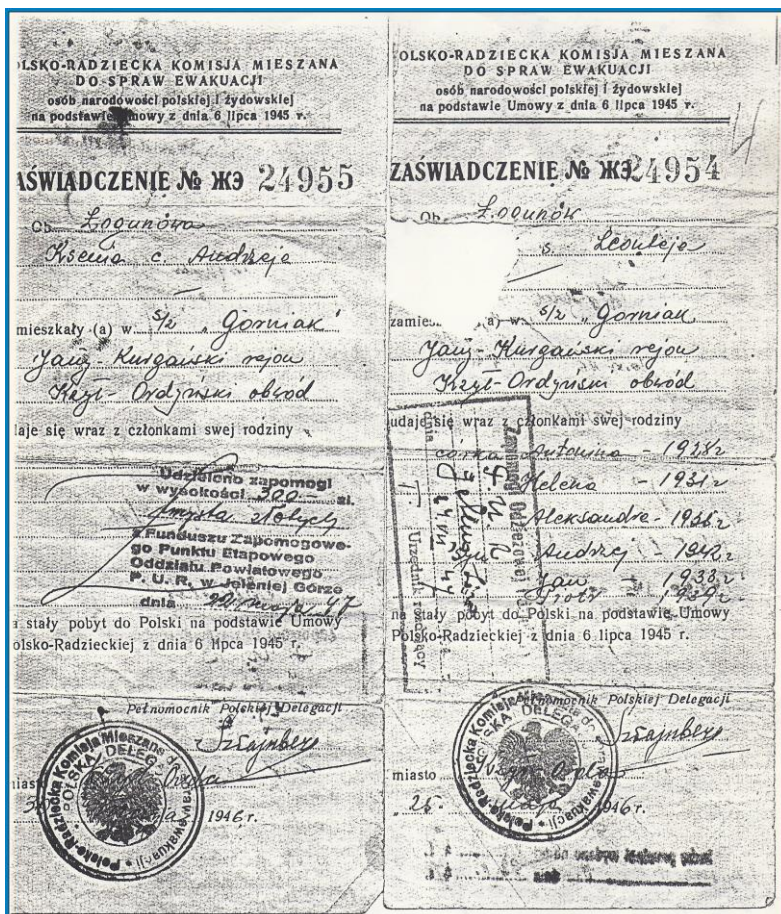 OLSKO-RADZIECKA KOMISJA MIESZANA
DO SPRAW EWAKUACJI
osób narodowości polskiej i żydowskiej
na podstawie Umowy z dnia 6 lipca 1945 r.
AŚWIADCZENIE № ЖЭ 24955
Ob. Łogunowa
Ksenia c. Andrzeja
mieszkały (a) w s/z "Gorniak"
Jany-Kurgański rejon
Kzył-Ordyński obwód
daje się wraz z członkami swej rodziny
Udzielono zapomogi
w wysokości 300 zł.
złotych
z Funduszu Zapomogowe-
go Punktu Etapowego
Oddziału Powiatowego
P. U. R. w Jeleniej Górze
dnia 22 maja 47
a stały pobyt do Polski na podstawie Umowy
olsko-Radzieckiej z dnia 6 lipca 1945 r.
Pełnomocnik Polskiej Delegacji
Sztajnberg
miasto
1946 r.
Polsko-Radziecka Komisja Mieszana do spraw ewakuacji
POLSKA DELEG
OLSKO-RADZIECKA KOMISJA MIESZANA
DO SPRAW EWAKUACJI
osób narodowości polskiej i żydowskiej
na podstawie Umowy z dnia 6 lipca 1945 r.
ZAŚWIADCZENIE № ЖЭ 24954
Ob. Łogunów
s. Leonteja
zamie (a) w s/z "Gorniak
Jany-Kurgański rejon
Kzył-Ordyński obwód
udaje się wraz z członkami swej rodziny
córka Antonina 1928 r
Helena - 1931 r
Aleksandra - 1936 r
Andrzej - 1942 r
Jan - 1938 r
Piotr - 1939 r
Zapomogi Odzieżowej
dnia
Urzędnik
na stały pobyt do Polski na podstawie Umowy
Polsko-Radzieckiej z dnia 6 lipca 1945 r.
Pełnomocnik Polskiej Delegacji
Sztajnberg
miasto Orda
25 maja 1946 r.
Polsko-Radziecka Komisja Mieszana do spraw ewakuacji
POLSKA DELEGA